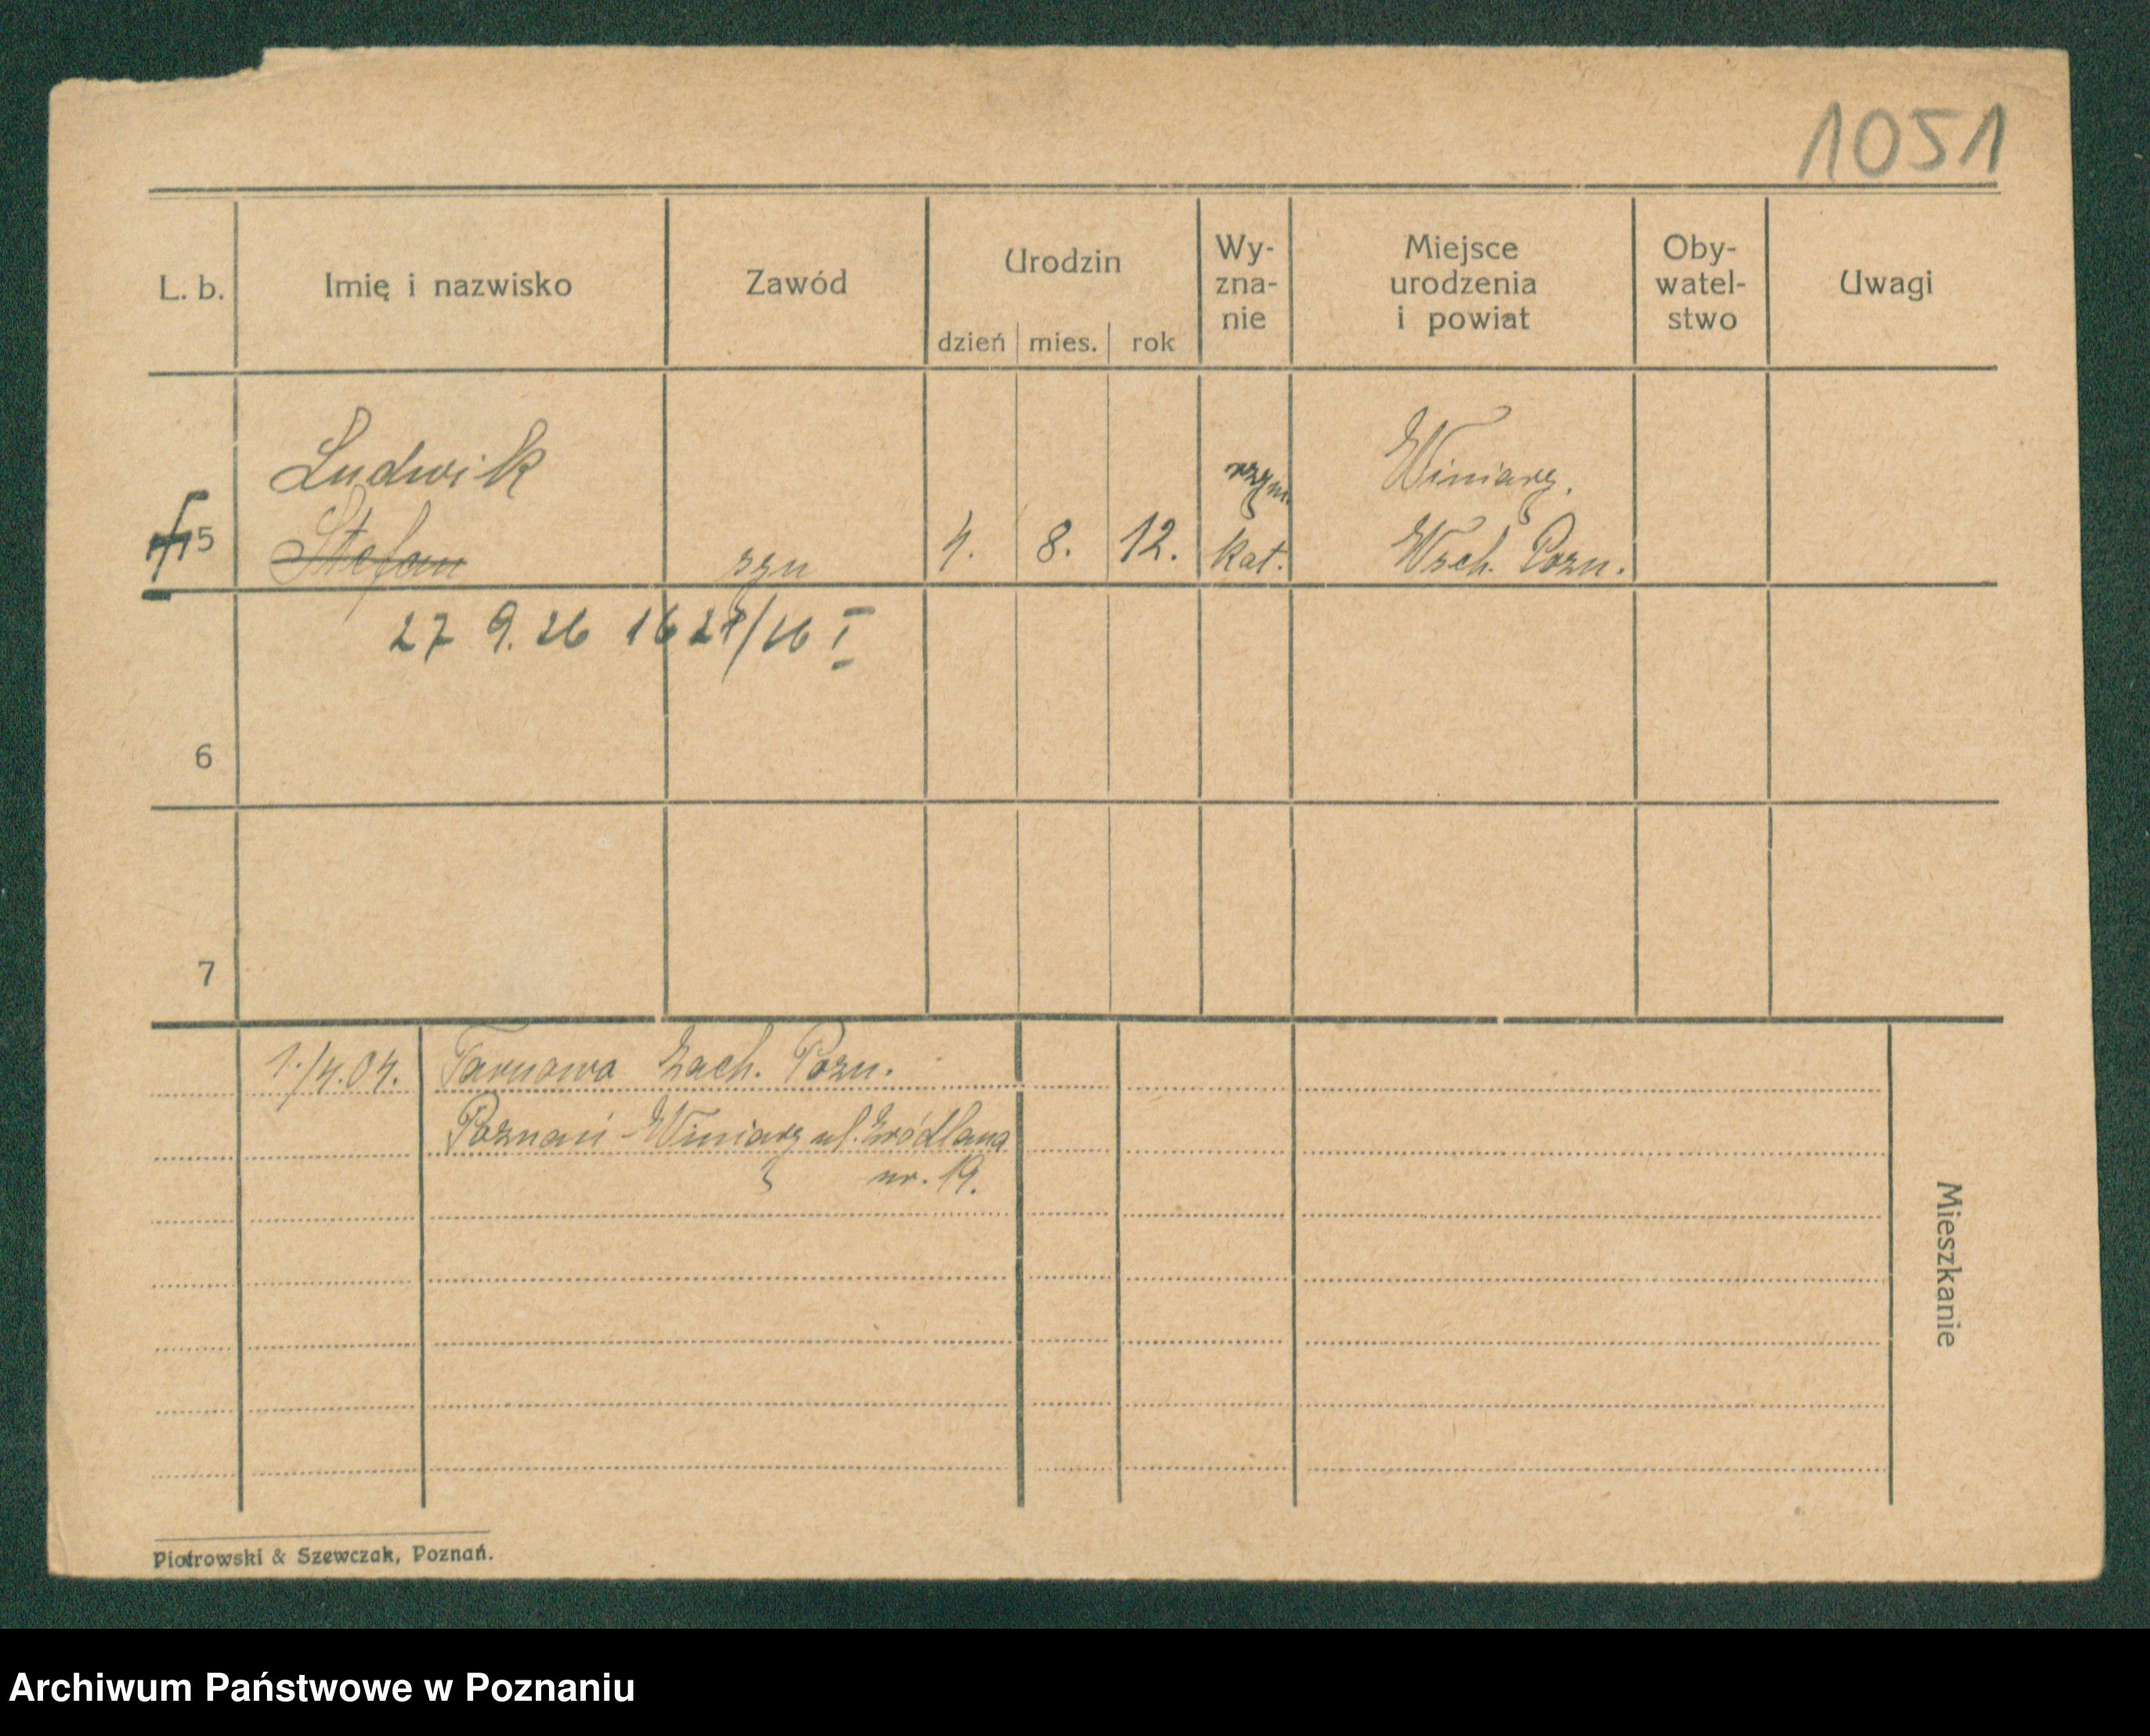 1051
L. b.
Imię i nazwisko
Zawód
Urodzin
dzień
mies.
rok
Wy-
zna-
nie
Miejsce
urodzenia
i powiat
Oby-
watel-
stwo
Uwagi
Ludwik
rzym.
Winiary.
5 Stefan syn 4. 8. 12. kat. Wsch. Pozn.
27 9. 26 I
6
7
1./4.04. Tarnowo Zach. Pozn.
Poznań-Winiary ul. Źródlana
nr. 19.
Mieszkanie
Piotrowski & Szewczak, Poznań.
Archiwum Państwowe w Poznaniu